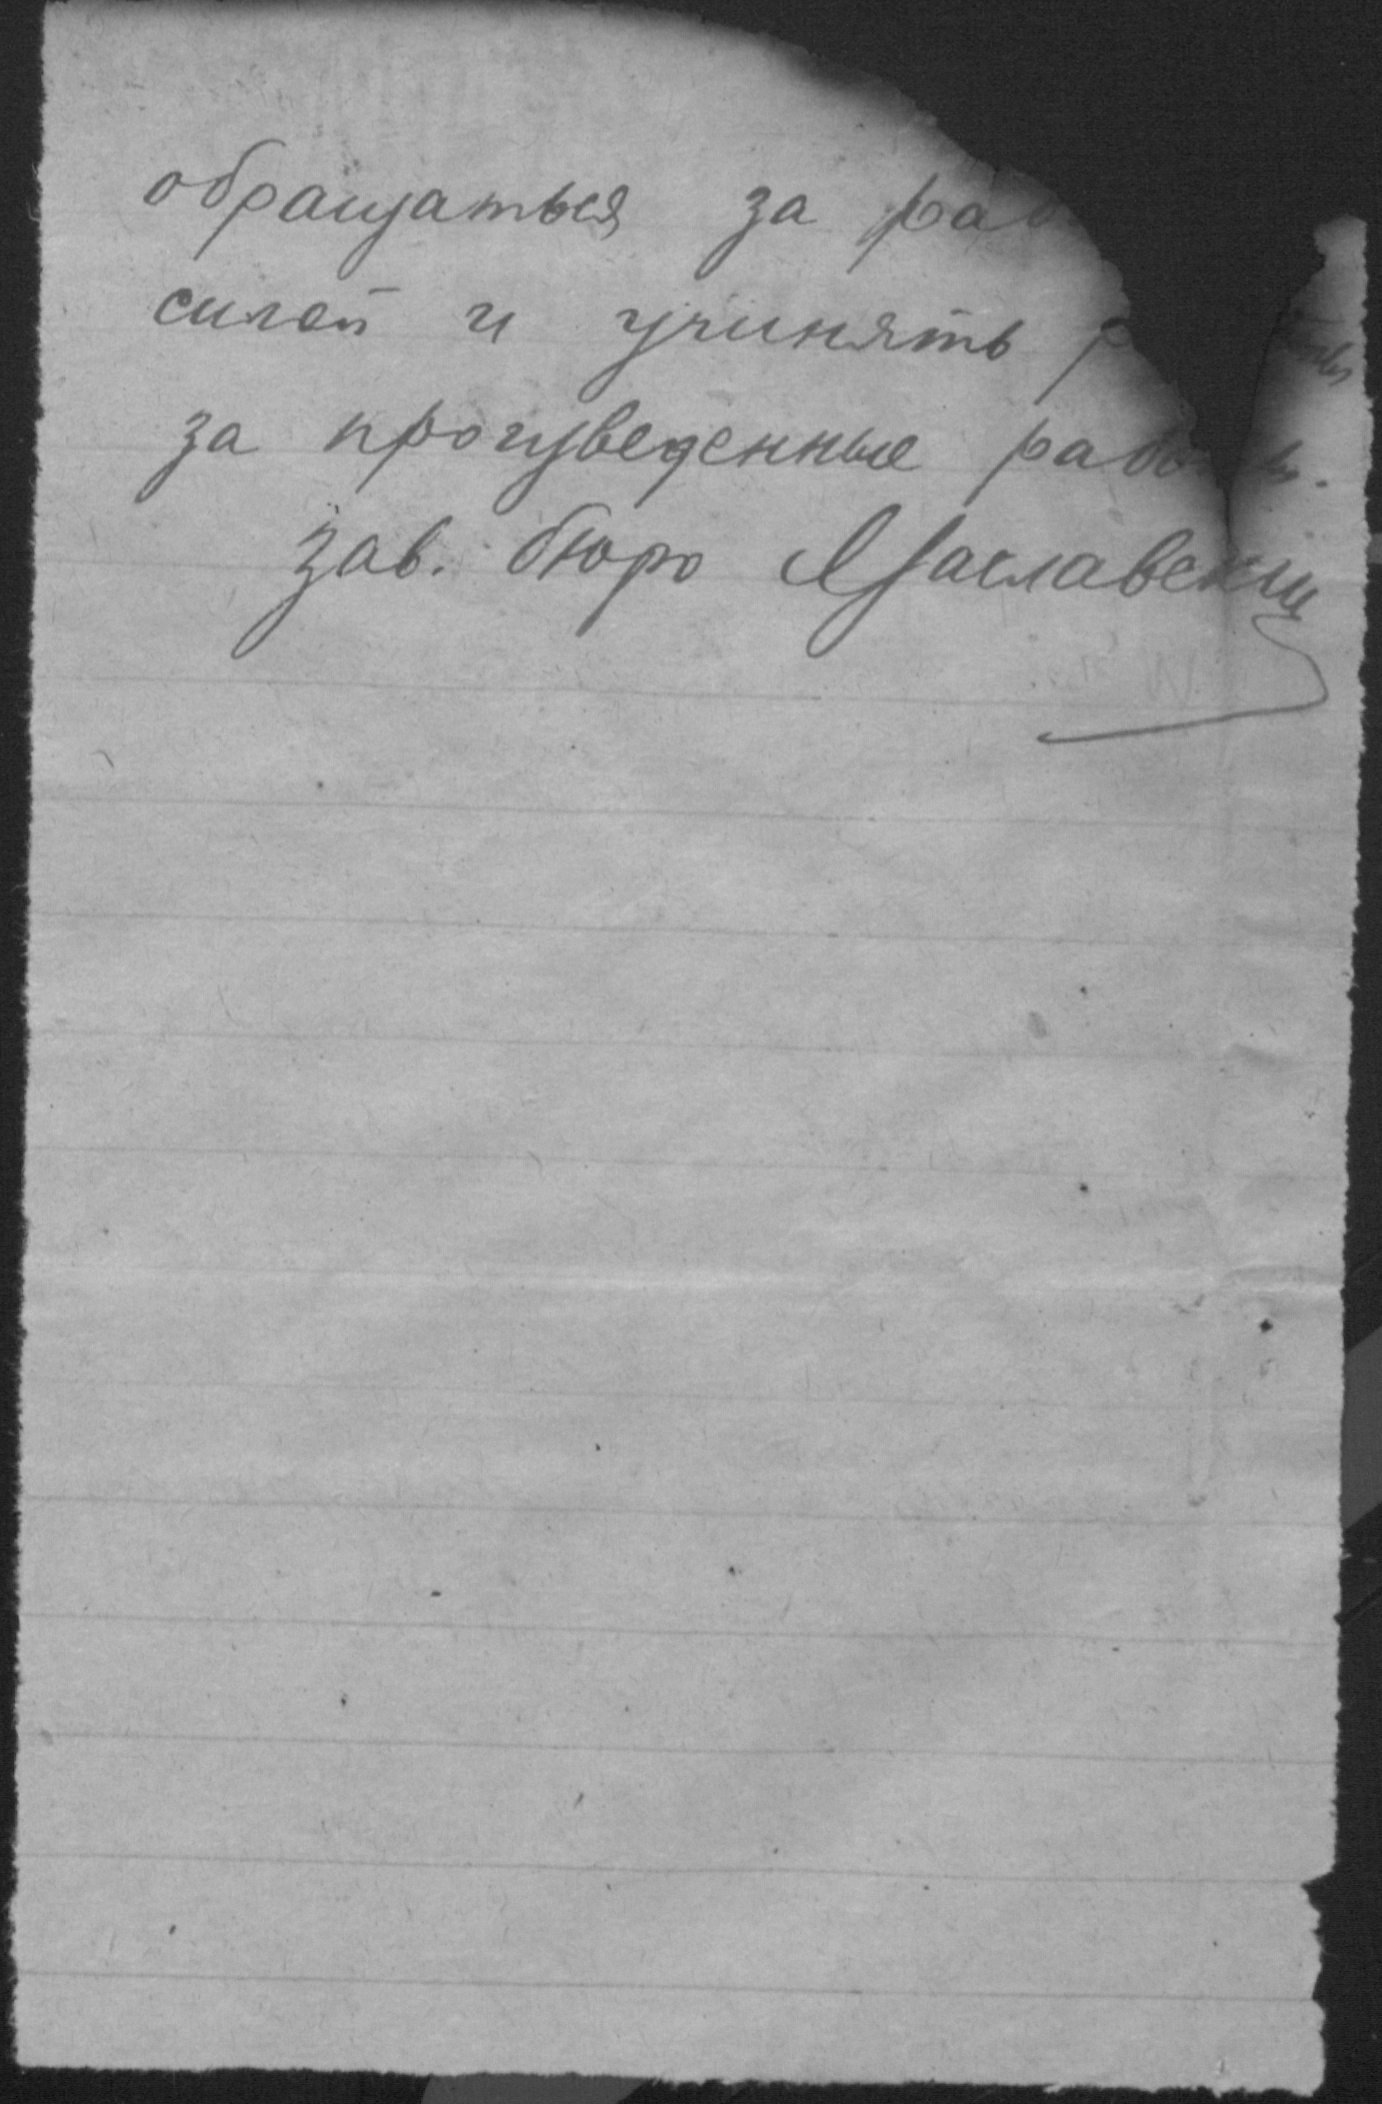 обращаться за раб
силой и учинять р
за произведенные работы.
Зав. бюро Яраславский